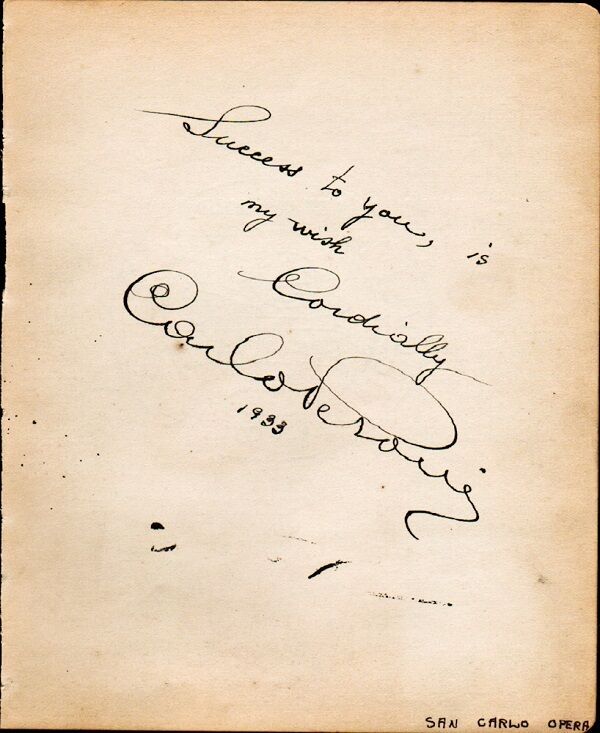 Success to you, is
my wish
Cordially
Carlo Peroni
1933
SAN CARLO OPERA